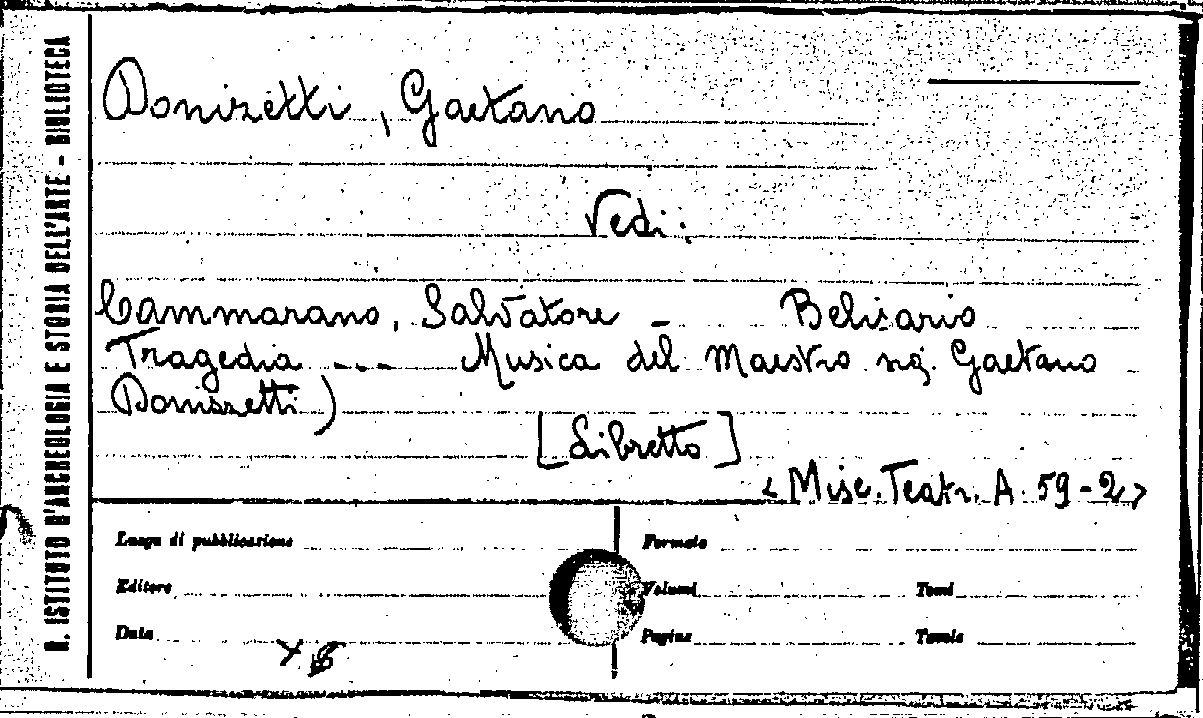 R. ISTITUTO D'ARCHEOLOGIA E STORIA DELL'ARTE - BIBLIOTECA
Donizetti, Gaetano
Vedi:
Cammarano, Salvatore - Belisario
Tragedia --- Musica del Maestro sig. Gaetano
Donizzetti)
[Libretto]
<Misc. Teatr. A. 59-2>
Luogo di pubblicazione
Formato
Editore
Volumi
Tomi
Data
Pagine
Tavole